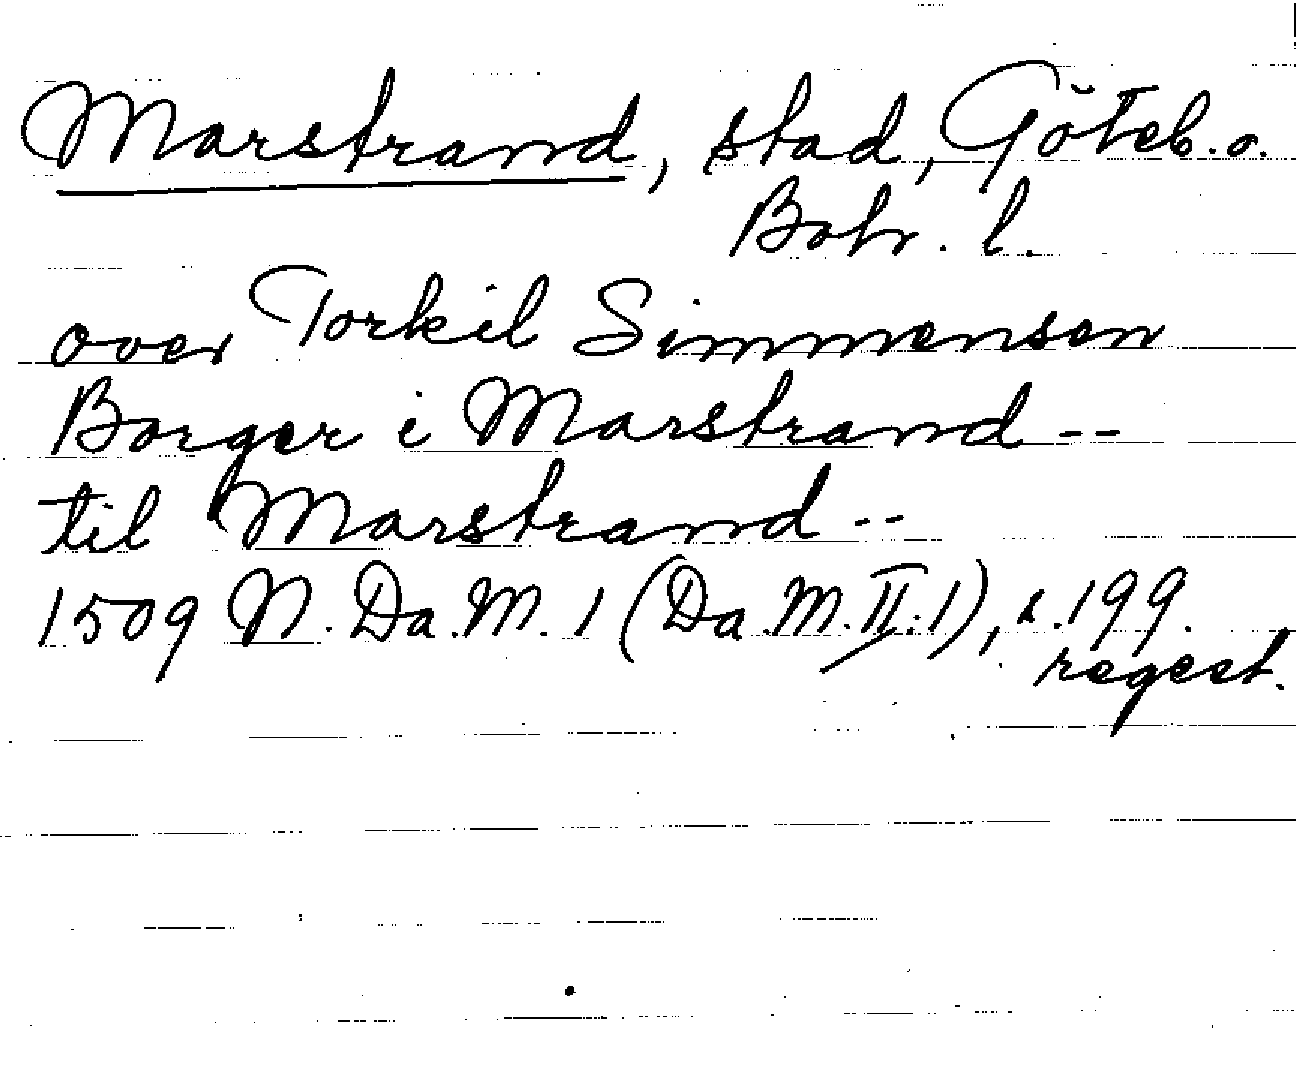 Marstrand, stad, Göteb. o.
Boh. l.
over Torkil Simmensen
Borger i Marstrand --
til Marstrand --
1509 N. Da. M. 1 (Da. M. II. 1), s. 199.
regest.